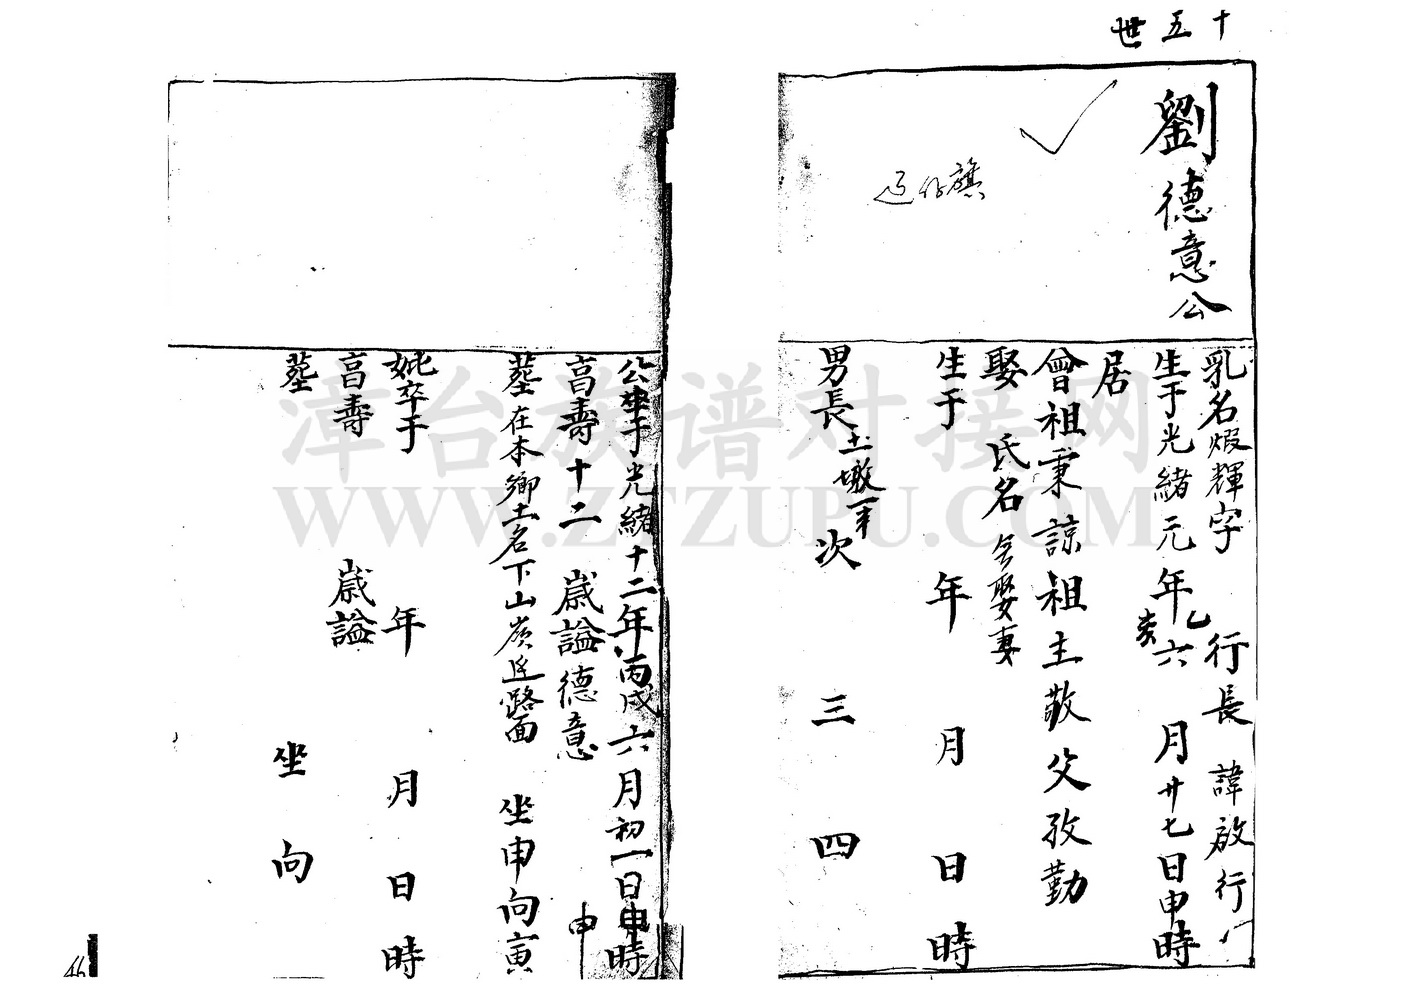 十五世
劉德意公
旗
乳名煆輝字 行長 諱啟行
生于光緒元年乙亥六月廿七日申時
居
曾祖秉諒祖主敬父孜勤
娶 氏名 仝娶妻
生于 年 月 日 時
男長土墩 次 三 四
公卒于光緒十二年丙戌六月初一日申時
申
亯壽十二 歲謚德意
墓在本鄉土名下山嶺路面 坐申向寅
妣卒于 年 月 日 時
亯壽 歲謚
墓 坐 向
46
漳台族谱对接网
WWW.ZTZUPU.COM